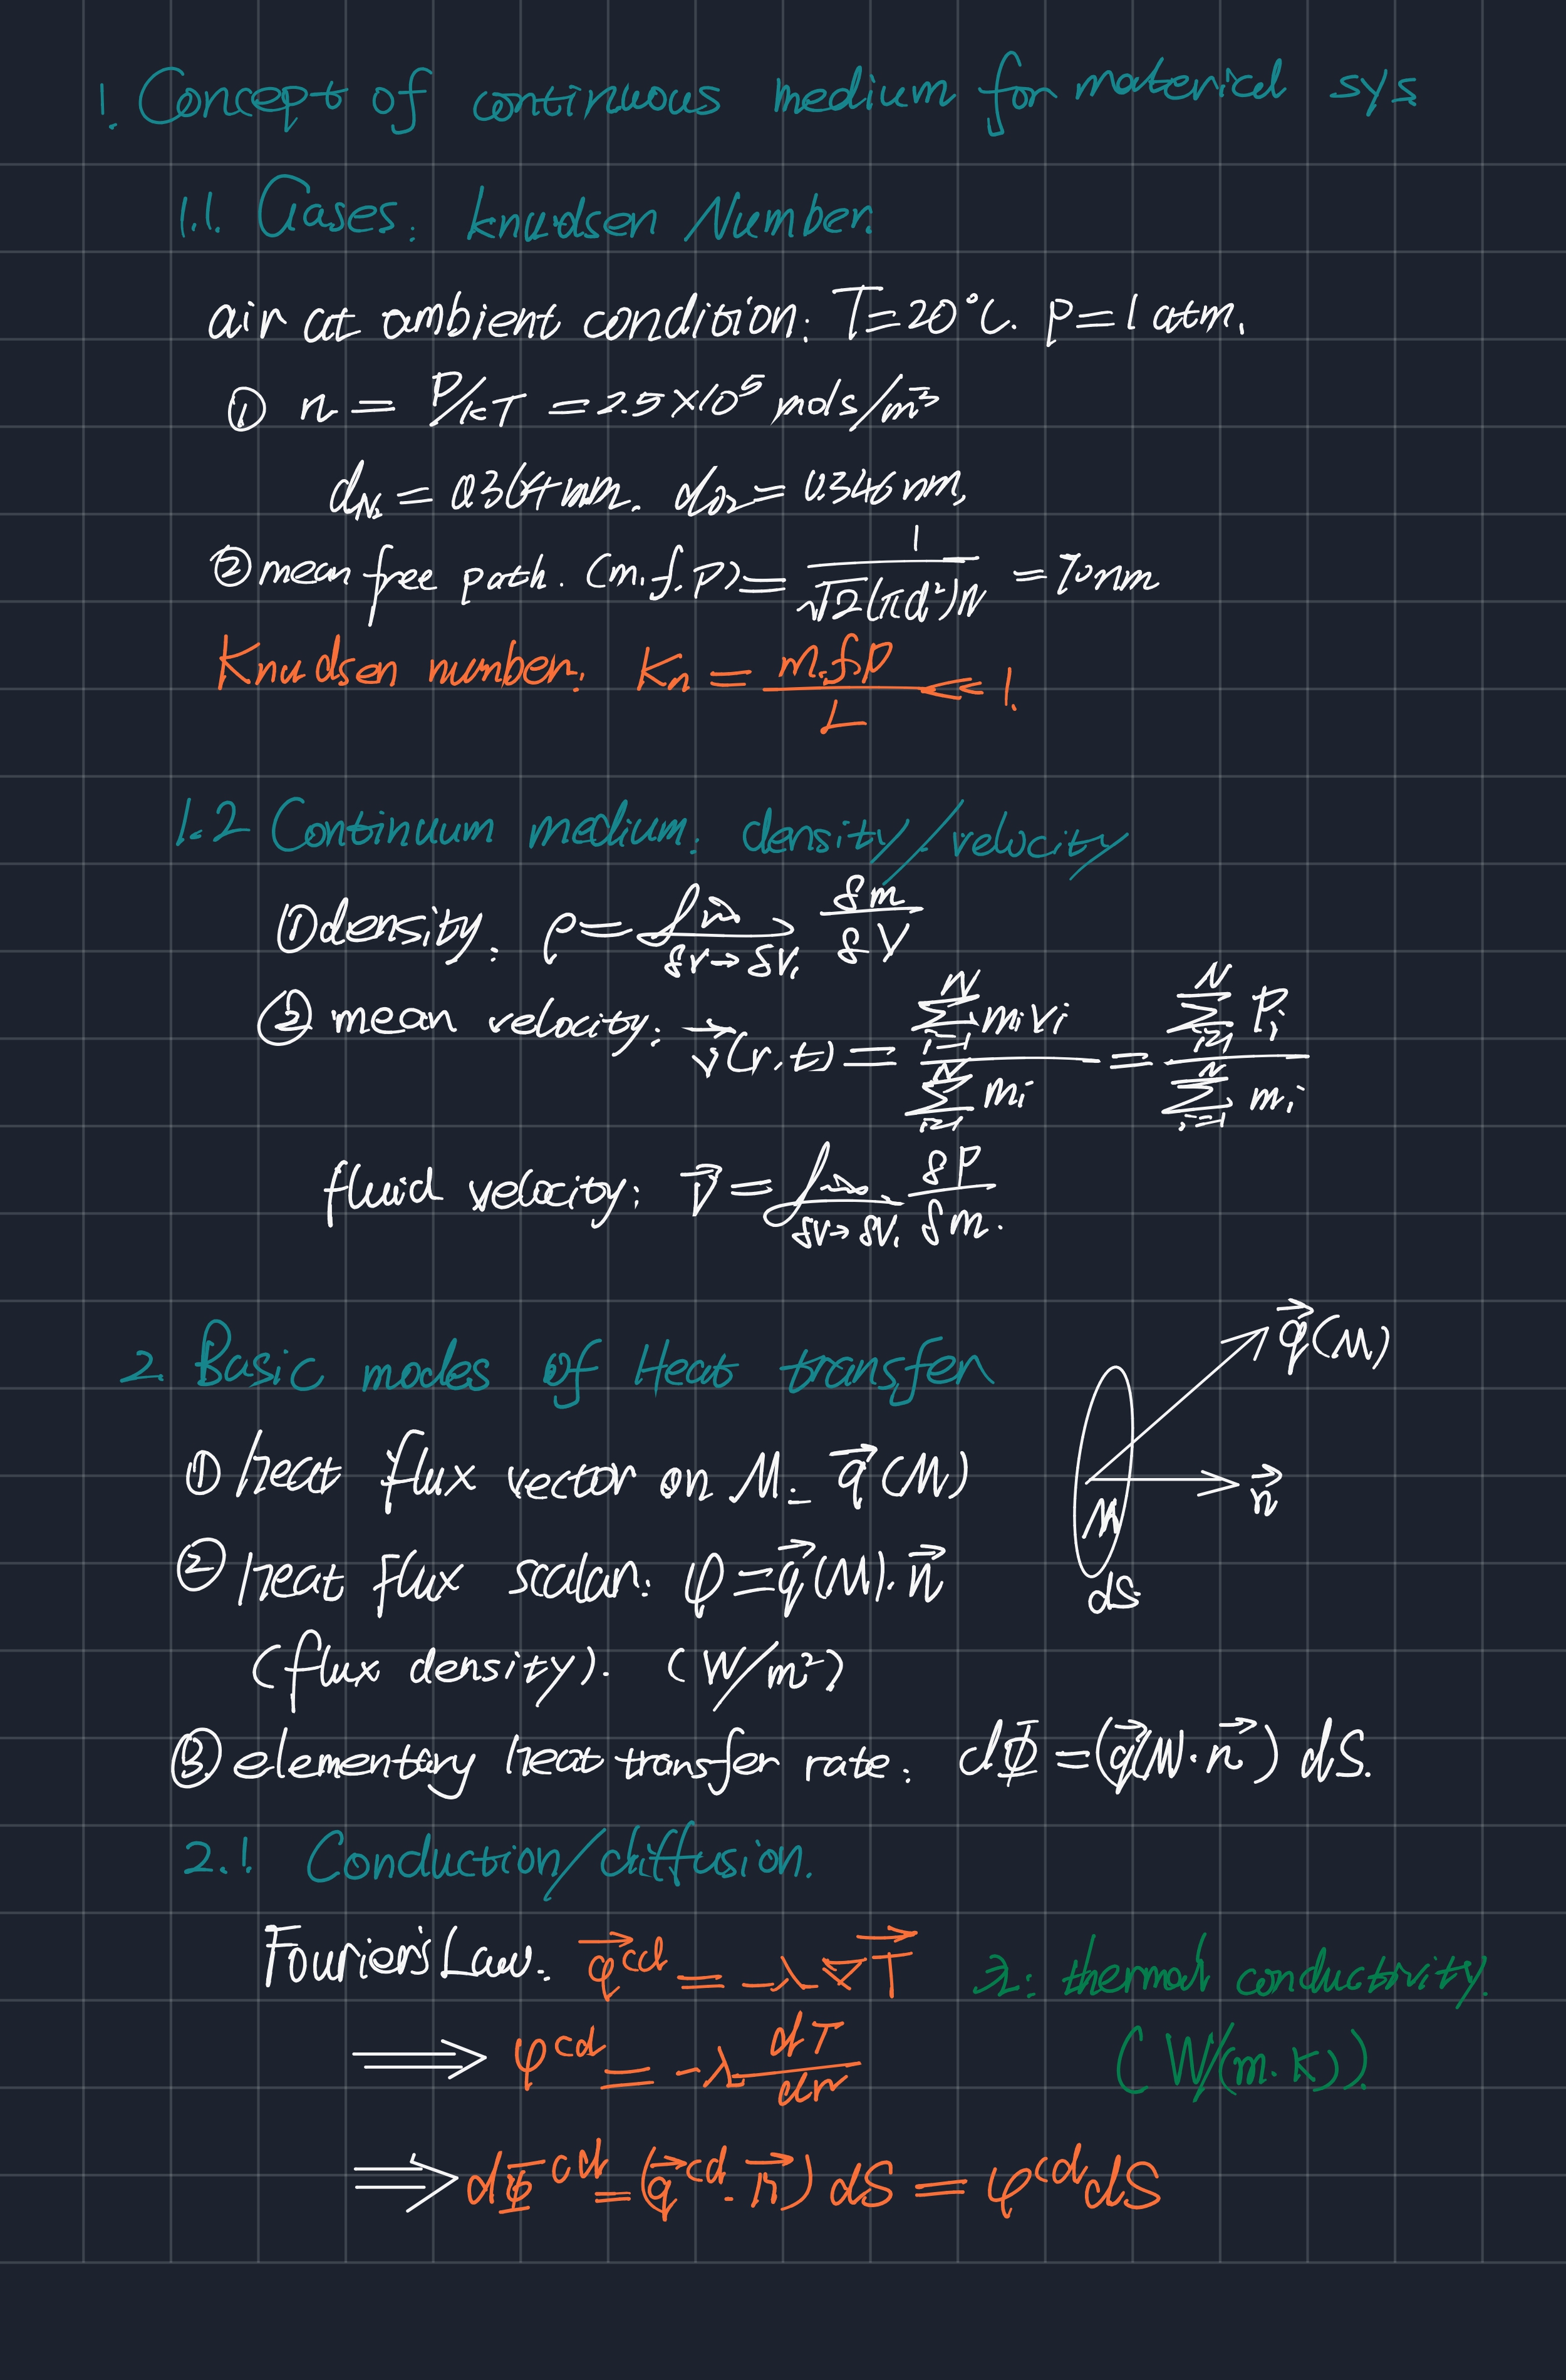 1. Concept of continuous medium for material sys
1.1. Gases. Knudsen Number
air at ambient condition: T=20°C. P=1 atm.
① n = P/kT = 2.5×10⁵ mols/m³
d_N₂ = 0.364 nm. d_O₂ = 0.346 nm.
② mean free path. (m.f.p) = 1/(√2(πd²)N) = 70nm
Knudsen number: Kn = m.f.p/L << 1.
1.2 Continuum medium: density/velocity
① density: ρ = lim_{δV→δV₁} δm/δV
② mean velocity: v⃗(r,t) = Σ_{i=1}^{N} mivi / Σ_{i=1}^{N} mi = Σ_{i=1}^{N} Pi / Σ_{i=1}^{N} mi
fluid velocity: V⃗ = lim_{δV→δV₁} δP/δm.
2. Basic modes of Heat transfer
q⃗(M)
n⃗
M
dS
① heat flux vector on M: q⃗(M)
② heat flux scalar: φ = q⃗(M)·n⃗
(flux density). (W/m²)
③ elementary heat transfer rate: dΦ = (q⃗(M·n⃗) dS.
2.1. Conduction/diffusion.
Fourier's Law: q⃗^cd = -λ∇T⃗
λ: thermal conductivity.
(W/(m·K)).
⟹ φ^cd = -λ dT/dr
⟹ dΦ^cd = (q⃗^cd·n⃗) dS = φ^cd dS